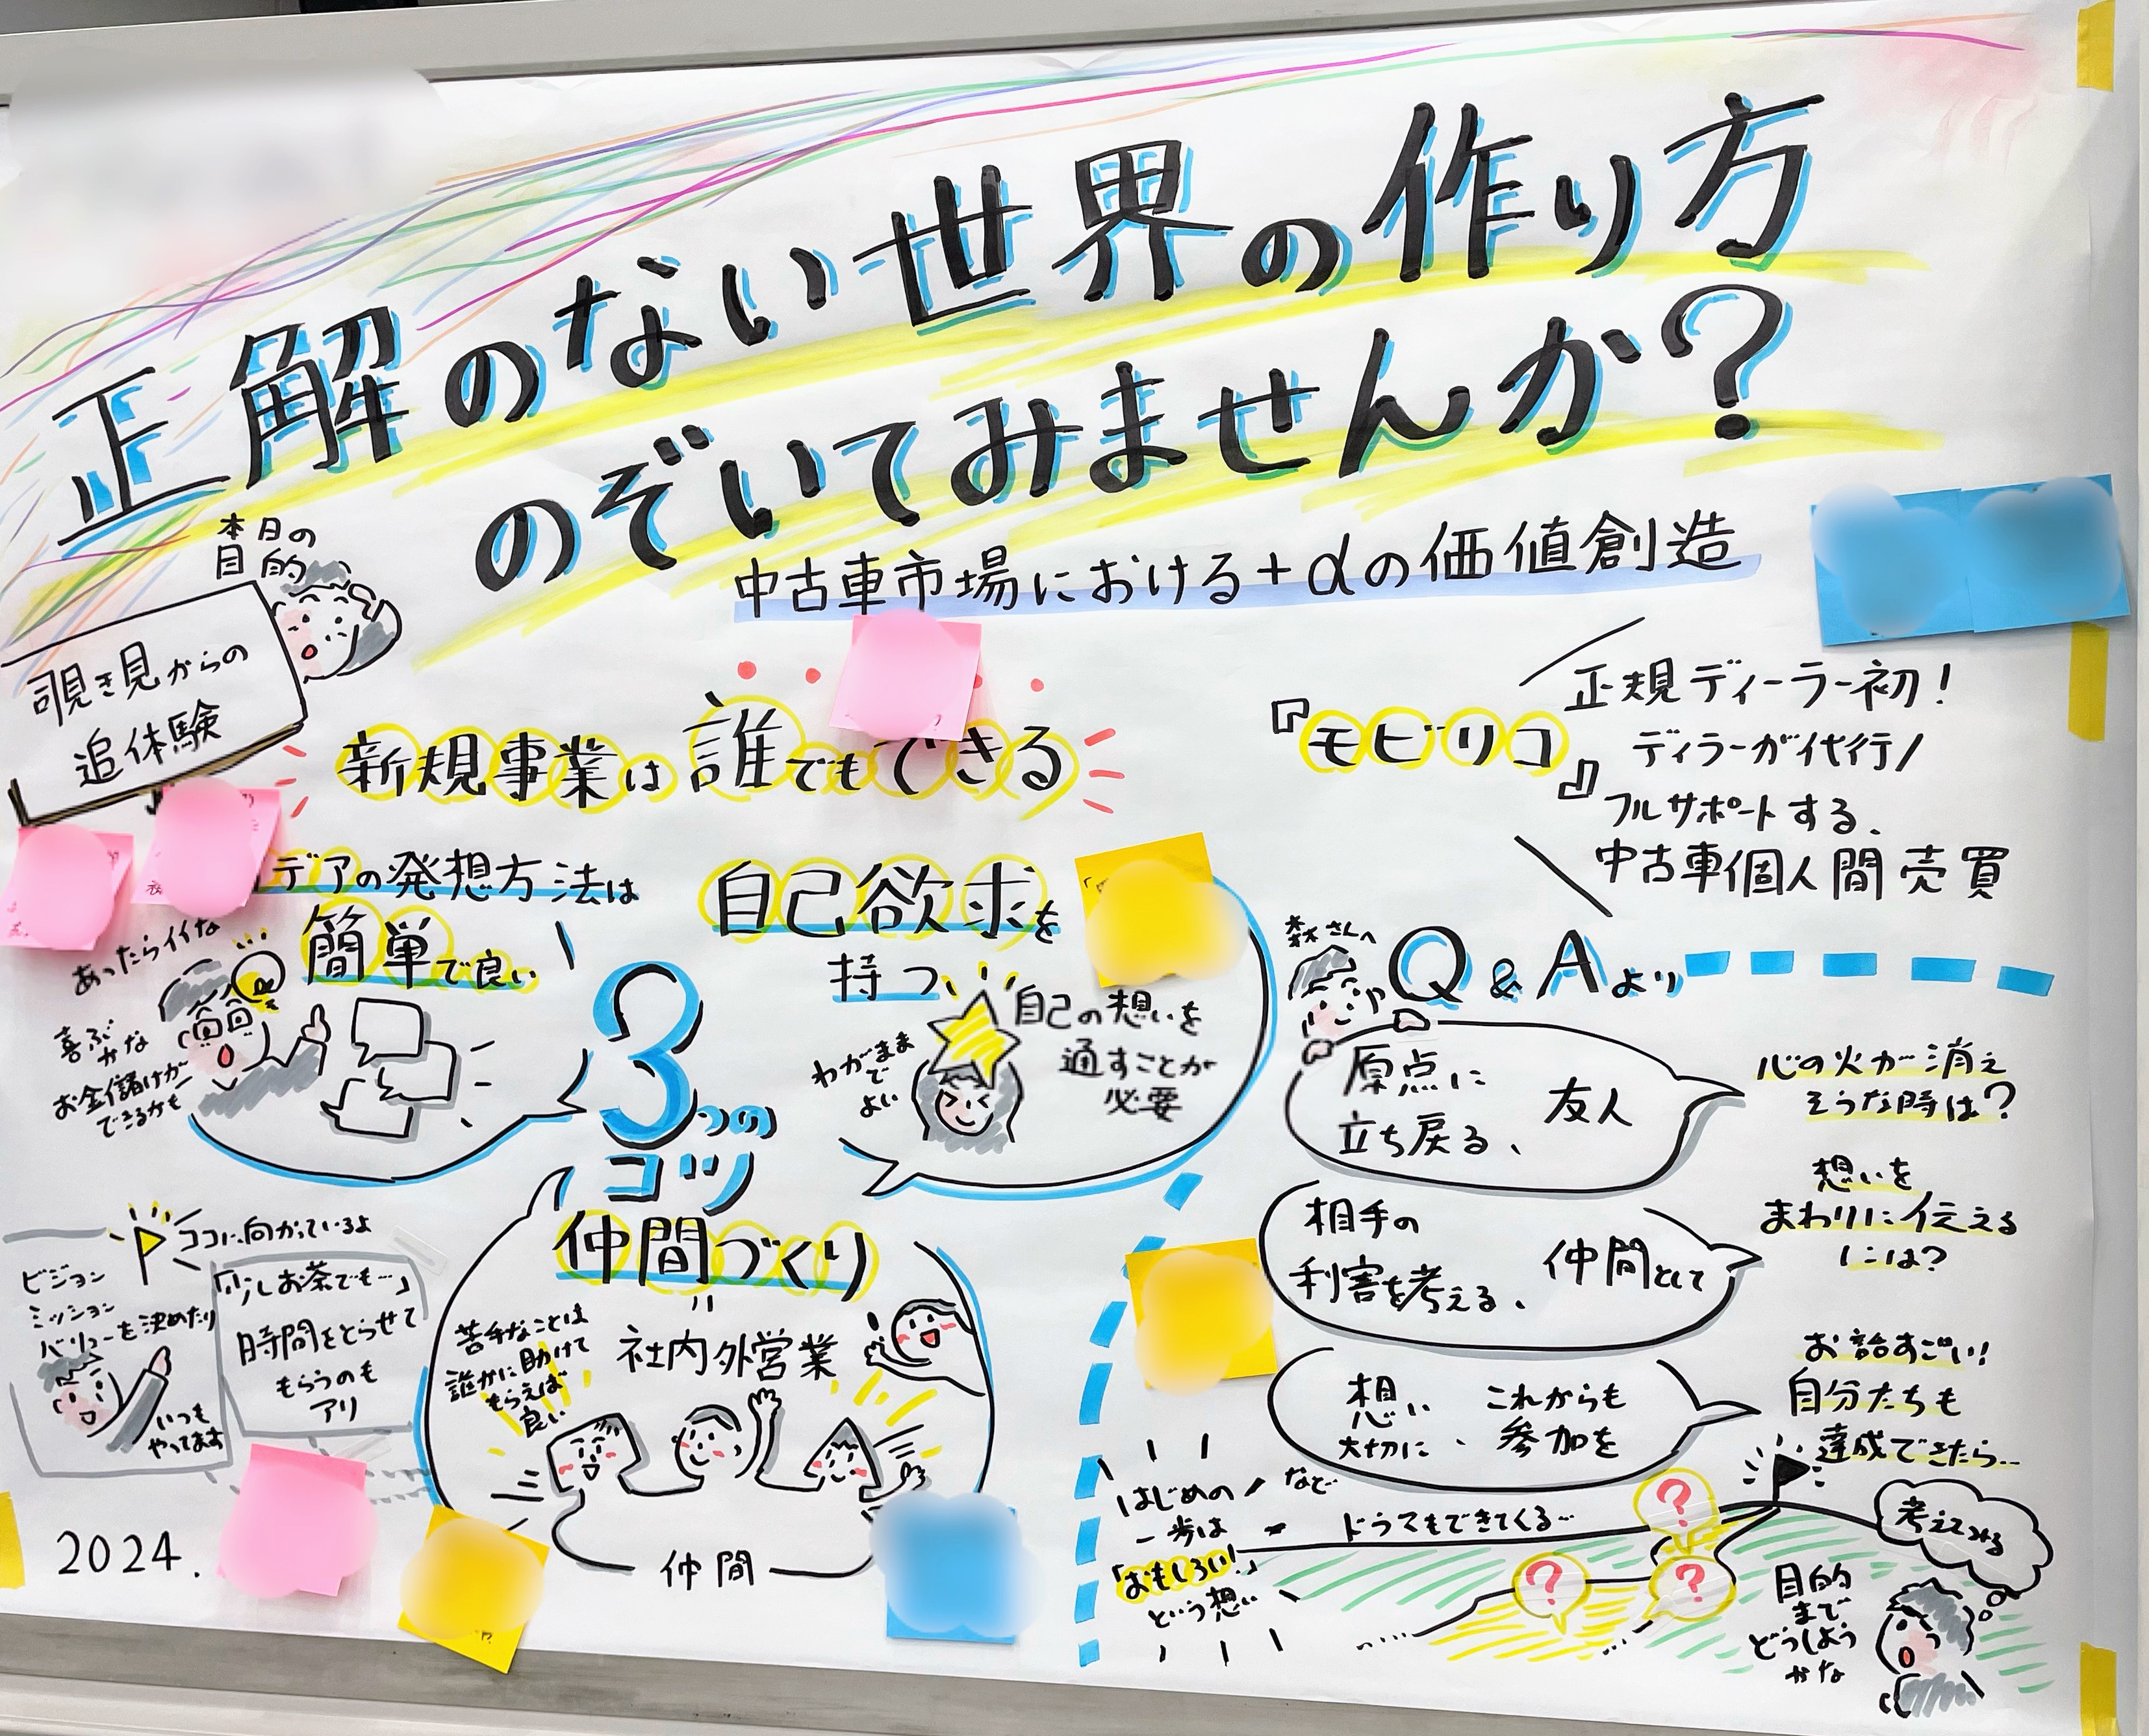 正解のない世界の作り方
のぞいてみませんか?
中古車市場における+αの価値創造
本日の
目的
覗き見からの
追体験
新規事業は誰でもできる
『モビリコ』
正規ディーラー初!
ディラーが代行/
フルサポートする、
中古車個人間売買
デアの発想方法は
簡単で良い
あったらイイな
喜ぶ
かな
お金儲けが
できるかも
3つの
コツ
自己欲求を
持つ
わがまま
で
よい
自己の想いを
通すことが
必要
仲間づくり
社内外営業
苦手なことは
誰かに助けて
もらえば
良い
仲間
ココに向かっているよ
ビジョン
ミッション
バリューを決めたり
いつも
やってます
「少しお茶でも…」
時間をとらせて
もらうのも
アリ
2024.
森さんへ
Q&Aより
心の火が消え
そうな時は?
原点に
立ち戻る、
友人
想いを
まわりに伝える
には?
相手の
利害を考える、
仲間として
お話すごい!
自分たちも
達成できたら…
想い
大切に、
これからも
参加を
など
はじめの
一歩は
「おもしろい!」
という想い
ドラマもできてくる…
?
?
?
考えてみる
目的
まで
どうしよう
かな